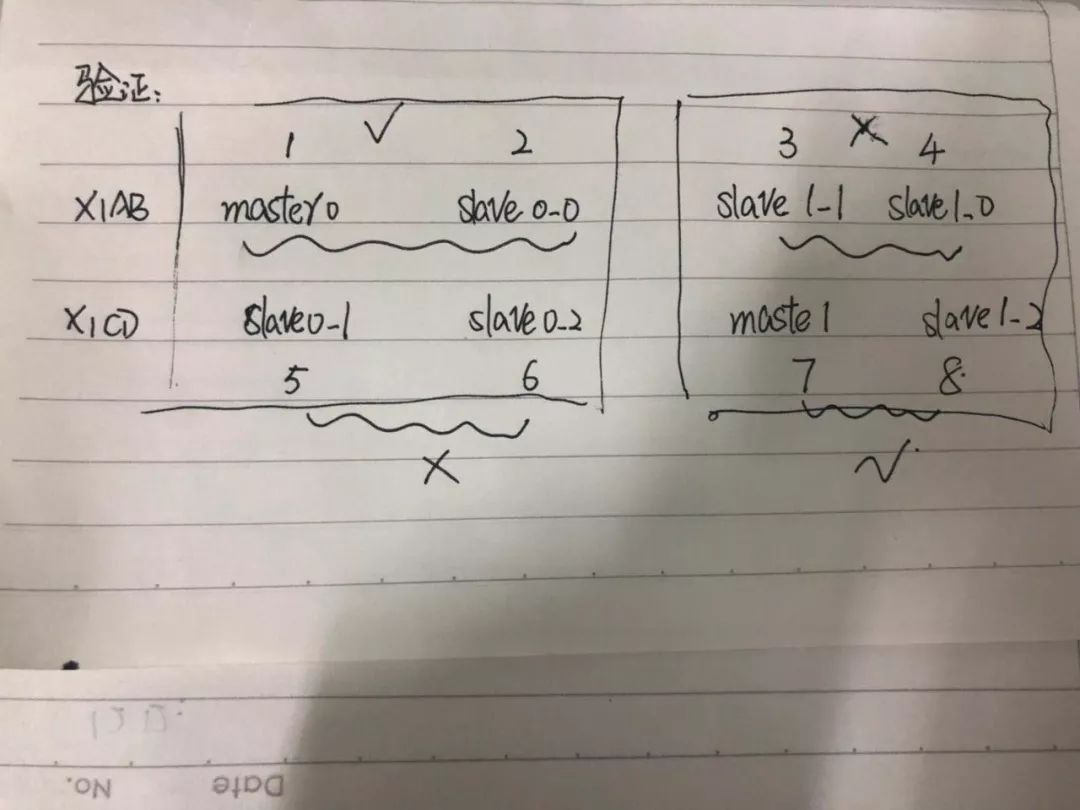 验证:
1 √ 2 3 × 4
X1AB master0 slave0-0 slave1-1 slave1-0
X1CD slave0-1 slave0-2 maste1 slave1-2
5 6 7 8
× √
No. Date